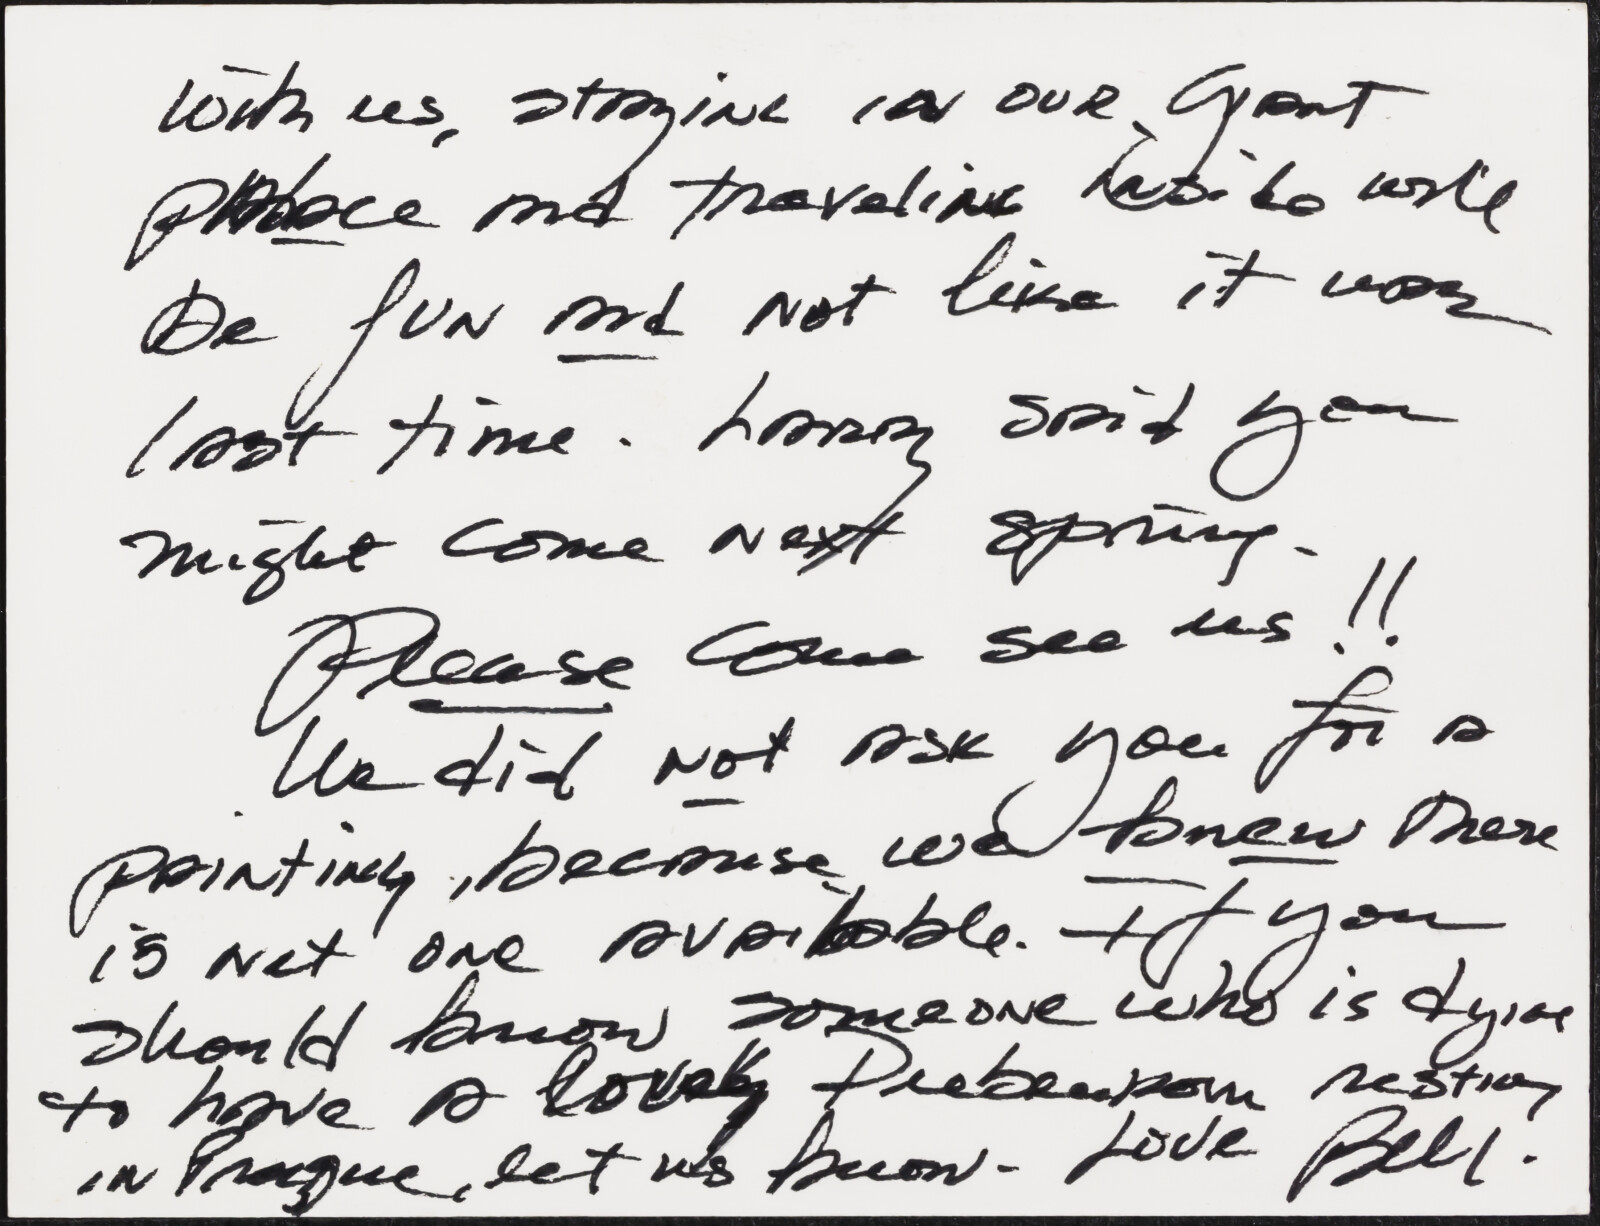 with us, staying in our Giant
palace and traveling inside will
be fun and not like it was
last time. Larry said you
might come next spring.
Please come see us!!
We did not ask you for a
painting, because we knew there
is not one available. If you
should know someone who is dying
to have a lovely Diebenkorn resting
in Prague, let us know- Love Bill.